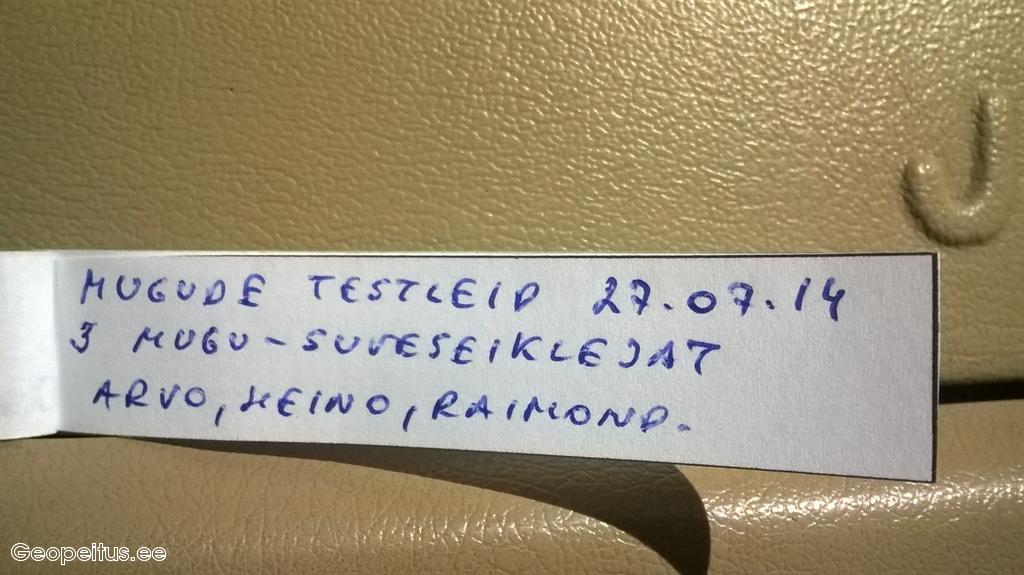 J
MUGUDE TESTLEID 27.07.14
3 MUGU-SUVESEIKLEJAT
ARVO, HEINO, RAIMOND.
Geopeitus.ee